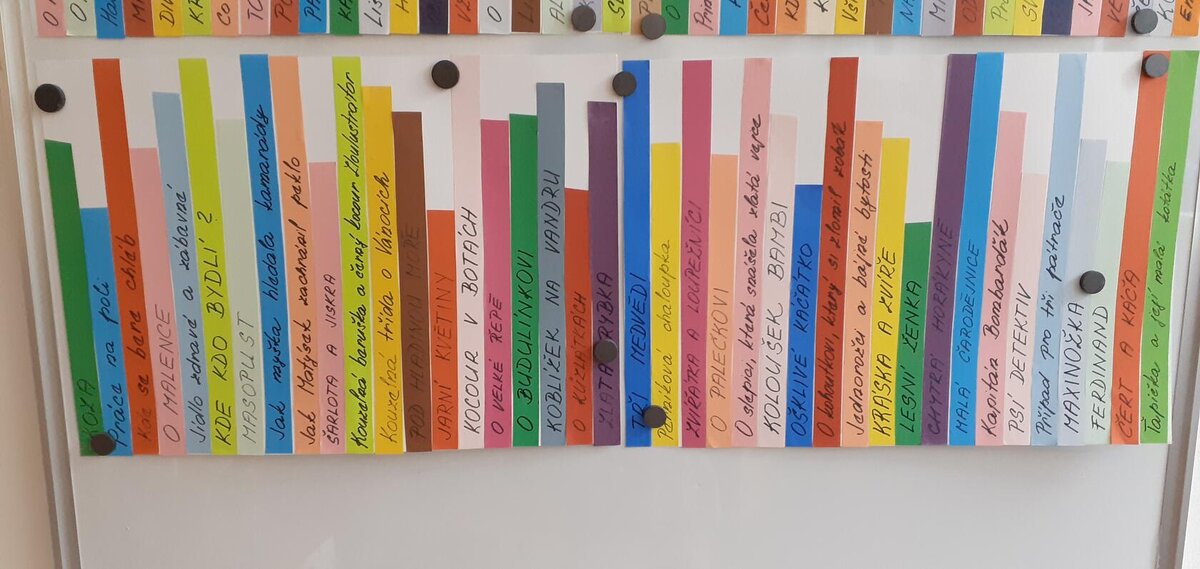 O
Ho
CO
O
KOZA
Práce na poli
Kde se bere chléb
O MALENCE
Jídlo zdravé a zábavné
KDE KDO BYDLÍ ?
MASOPUST
Jak myška hledala kamarády
Jak Matýsek zachránil peklo
ŠARLOTA A JISKRA
Kouzelná baruška a černý kocour Ilowlustrator
Kouzelná třída o Vánocích
POD HLADINOU MOŘE
JARNÍ KVĚTINY
KOCOUR V BOTÁCH
O VELKÉ ŘEPĚ
O BUDULÍNKOVI
KOBLÍŽEK NA VANDRU
O KŮZLÁTKÁCH
ZLATÁ RYBKA
TŘI MEDVĚDI
Perníková chaloupka
ZVÍŘÁTKA A LOUPEŽNÍCI
O PALEČKOVI
O slepici, která snášela zlatá vejce
KOLOUŠEK BAMBI
OŠKLIVÉ KAČÁTKO
O kohoutkovi, který si zlomil zobák
Jednorožci a bájné bytosti
KRÁSKA A ZVÍŘE
LESNÍ ŽENKA
CHYTRÁ HORÁKYNĚ
MALÁ ČARODĚJNICE
Kapitán Bombarďák
PSÍ DETEKTIV
Případ pro tři pátrače
MAXINOŽKA
FERDINAND
ČERT A KÁČA
Ťapička a její malá koťátka